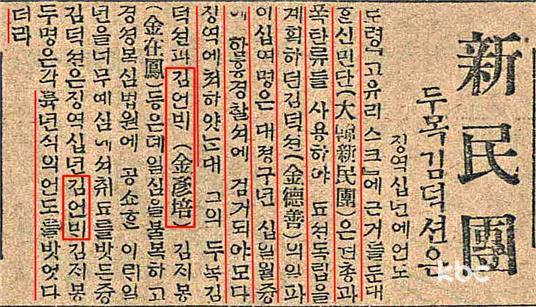 新民團
두목김덕션은
징역십년에언도
로령『고유리스크』에근거를둔대
흔신민단(大韓新民團)은권총과
폭탄류를 사용하야 됴션독립을
계획하던김덕션(金德善)의일파
이십여명은 대졍구년 십일월중
에 함흥경찰셔에 검거되야모다
징역에쳐하얏는대 그의 두목김
덕션과김언비(金彦培) 김지봉
(金在鳳)등은뎨일심을불복하고
경셩복심법원에 공소흔 이리일
년을너무예심에셔취됴를밧든중
김덕션은징역십년김언비김지봉
두명은각륙년식의언도를밧엇다
더라
kbc